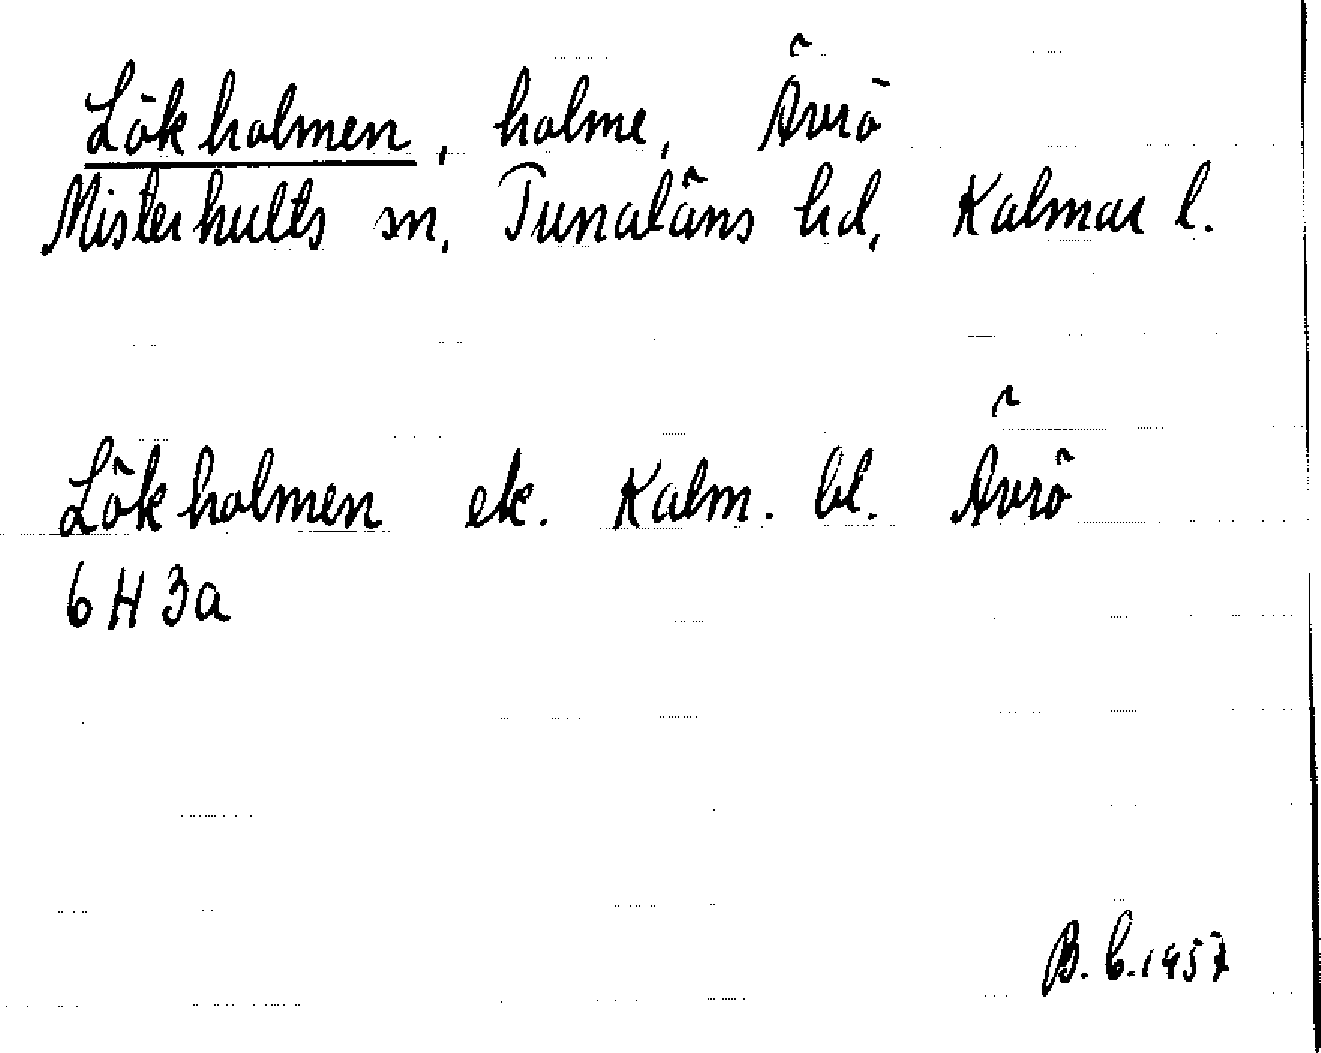 Lökholmen, holme, Ävrö
Misterhults sn, Tunaläns hd, Kalmar l.
Lökholmen ek. Kalm. bl. Ävrö
6H3a
B.C.1957